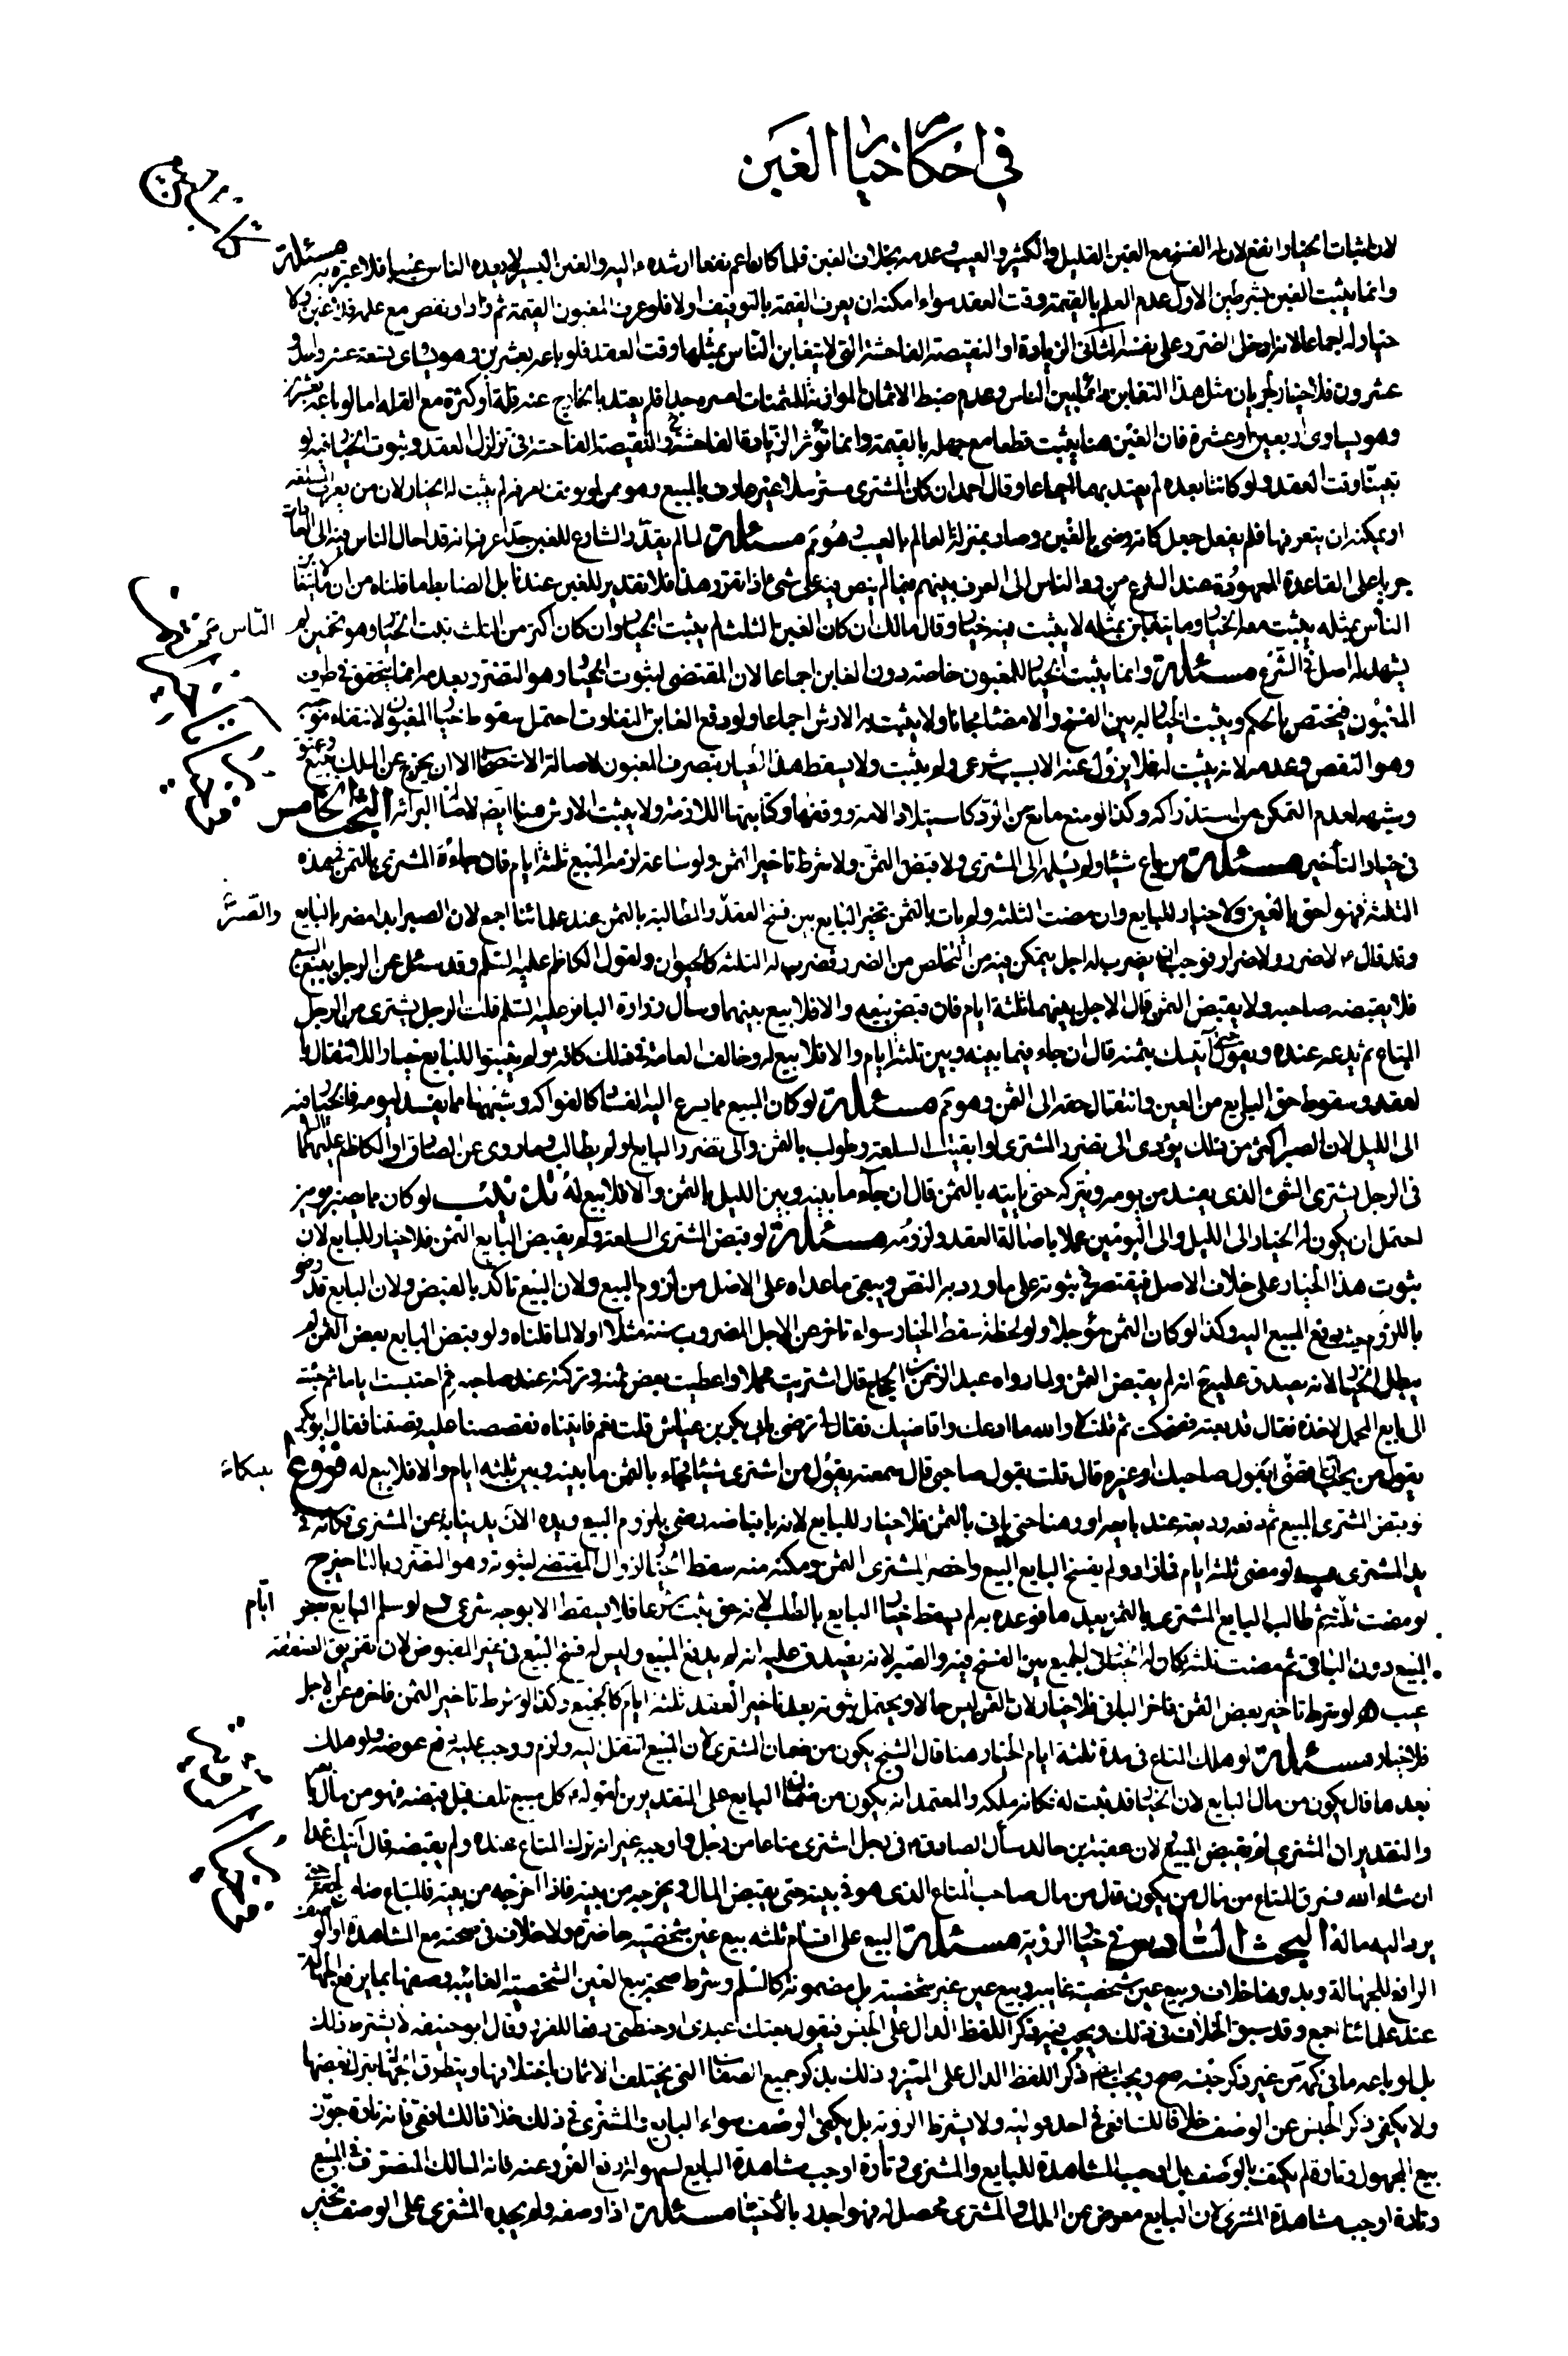 في احكام خيار الغبن
لان اثبات الخيار انفع لان له الفسخ مع الغبن القليل والكثير والعيب وعدمه بخلاف الغبن فلما كان اعم نفعا ارشده اليه والغبن اليسير لا يعده الناس غبنا فلا عبرة به مسئلة
وانما يثبت الغبن بشرطين الاول عدم العلم بالقيمة وقت العقد سواء امكنه ان يعرف القيمة بالتوقف اولا فلو عرف المغبون القيمة ثم زاد او نقص مع علمه فلا غبن ولا
خيار له اجماعا لانه ادخل الضرر على نفسه الثاني الزيادة او النقيصة الفاحشة التي لا يتغابن الناس بمثلها وقت العقد فلو باعه بعشرين وهو يساوي تسعة عشر واحد و
عشرون فلا خيار لجريان مثل هذا التغابن دائما بين الناس وعدم ضبط الاثمان الموازنة للمثمنات لعسره جدا فلم يعتد بالخارج عنه قلة او كثرة مع القلة اما لو باعه بعشرة
وهو يساوي اربعين او عشرة فان الغبن هنا يثبت قطعا مع جهله بالقيمة وانما تؤثر الزيادة الفاحشة والنقيصة الفاحشة في تزلزل العقد وثبوت الخيار فيه لو
تبينتا وقت العقد ولو كانتا بعده لم يعتد بهما اجماعا وقال احمد ان كان المشتري مسترسلا غير عارف بالمبيع وهو ممن لو توقف لعرفه لم يثبت له الخيار لان من يعرف السلعة
او يمكنه ان يتعرفها فلم يفعل جعل كانه رضي بالغبن وصار بمنزلة العالم بالعيب وهو تم مسئلة لما لم يقدر الشارع للغبن حدا عرف انه قد احال الناس فيه الى العادات
جريا على القاعدة المعهودة عند الشرع من رد الناس الى العرف بينهم فيما لم ينص فيه على شيء اذا تقرر هذا فلا تقدير للغبن عندنا بل الضابط ما قلناه من ان ما لا يتغابن
الناس بمثله يثبت معه الخيار وما يتغابن بمثله لا يثبت فيه خيار وقال مالك ان كان الغبن الثلث لم يثبت الخيار وان كان اكثر من الثلث ثبت الخيار وهو تخمين لم
يشهد له اصل في الشرع مسئلة وانما يثبت الخيار للمغبون خاصة دون الغابن اجماعا لان المقتضى لثبوت الخيار وهو التضرر بعدمه انما يتحقق في طرف
المغبون فيختص بالحكم ويثبت الخيار له بين الفسخ والامضاء مجانا ولا يثبت به الارش اجماعا ولو دفع الغابن التفاوت احتمل سقوط خيار المغبون لانتفاء موجبه
وهو النقص وعدمه لانه يثبت له فلا يزول عنه الا بسبب شرعي ولم يثبت ولا يسقط هذا الخيار بتصرف المغبون لاصالة الاستصحاب الا ان يخرج عن الملك ببيع وعتق
وشبهه لعدم التمكن من استدراكه وكذا لو منع مانع من الرد كاستيلاد الامة ووقفها وكتابتها اللازمة ولا يثبت الارش هنا ايضا لاصالة البراءة البحث الخامس
في خيار التأخير مسئلة من باع شيئا ولم يسلمه الى المشتري ولا قبض الثمن ولا شرط تاخير الثمن ولو ساعة لزمه البيع ثلثة ايام فان جاءه المشتري بالثمن في هذه
الثلثة فهو احق بالعين ولا خيار للبايع وان مضت الثلثة ولم يات بالثمن تخير البايع بين فسخ العقد والمطالبة بالثمن عند علمائنا اجمع لان الصبر ابدا مضر بالبايع
وقد قال ع لا ضرر ولا ضرار فوجب ان يضرب له اجل يتمكن فيه من التخلص من الضرر فضرب له الثلثة كالحيوان ولقول الكاظم عليه السلم وقد سئل عن الرجل يبيع البيع
فلا يقبضه صاحبه ولا يقبض الثمن قال الاجل بينهما ثلثة ايام فان قبض بيعه والا فلا بيع بينهما وسأل زرارة الباقر عليه السلم قلت الرجل يشتري من الرجل
المتاع ثم يدعه عنده ويقول حتى آتيك بثمنه قال ان جاء فيما بينه وبين ثلثة ايام والا فلا بيع له وخالف العامة في ذلك كافة ولم يثبتوا للبايع خيارا لانتقال
العقد وسقوط حق البايع من العين وانتقال حقه الى الثمن وهو تم مسئلة لو كان المبيع مما يسرع اليه الفساد كالفواكه وشبهها مما يفسد ليومه فالخيار فيه
الى الليل لان الصبر اكثر من ذلك يؤدي الى تضرر المشتري لو ابقيت السلعة وطولب بالثمن والى تضرر البايع لو لم يطالب وما روي عن الصادق او الكاظم عليهما
في الرجل يشتري الشيء الذي يفسد من يومه ويتركه حتى يأتيه بالثمن قال ان جاء ما بينه وبين الليل بالثمن والا فلا بيع له تذنيب لو كان مما يصبر يومين
احتمل ان يكون له الخيار الى الليل والى اليومين عملا باصالة العقد ولزومه مسئلة لو قبض المشتري السلعة ولم يقبض البايع الثمن فلا خيار للبايع لان
ثبوت هذا الخيار على خلاف الاصل فيقتصر في ثبوته على ما ورد به النص ويبقى ما عداه على الاصل من لزوم البيع ولان البيع تأكد بالقبض ولان البايع قد رضي
باللزوم حيث دفع المبيع اليه وكذا لو كان الثمن مؤجلا ولو لحظة سقط الخيار سواء تاخر عن الاجل المضروب سنة مثلا اولا لما قلناه ولو قبض البايع بعض الثمن لم
يبطل الخيار لانه يصدق عليه ح انه لم يقبض الثمن ولما رواه عبد الرحمن بن الحجاج قال اشتريت محملا واعطيت بعض ثمنه وتركته عند صاحبه ثم احتبست اياما ثم جئت
الى بايع المحمل لاخذه فقال قد بعته فضحكت ثم قلت لا والله ما ادعك واقاضيك فقال لي ترضى بابي بكر بن عياش قلت نعم فاتيناه فقصصنا عليه قصتنا فقال ابو بكر
يقول من تحب ان اقضي ابقول صاحبك او غيره قال قلت بقول صاحبي قال سمعته يقول من اشترى شيئا فجاء بالثمن ما بينه وبين ثلثة ايام والا فلا بيع له فروع
لو قبض المشتري المبيع ثم دفعه وديعة عند بايعه او رهنا حتى ياتي بالثمن فلا خيار للبايع لانه باقباضه رضي بلزوم البيع ويده الآن يد نيابة عن المشتري فكانه في
يد المشتري ب لو مضى ثلثة ايام فما زاد ولم يفسخ البايع البيع واحضر المشتري الثمن ومكنه منه سقط الخيار لزوال المقتضي لثبوته وهو التضرر بالتاخير ج
لو مضت ثلثة ثم طالب البايع المشتري بالثمن بعدها فوعده به لم يسقط خيار البايع بالطلب لانه حق يثبت شرعا فلا يسقط الا بوجه شرعي د لو سلم البايع بعض
المبيع دون الباقي ثم مضت ثلثة كان له الخيار في الجميع بين الفسخ فيه والصبر لانه يصدق عليه انه لم يدفع المبيع وليس له فسخ البيع في غير المقبوض لان تفريق الصفقة
عيب ه لو شرط تاخير بعض الثمن فاخر الباقي فلا خيار لان الثمن ليس حالا ويحتمل ثبوته بعد تاخير العقد ثلثة ايام كالجميع وكذا لو شرط تاخير الثمن فاخره عن الاجل
فلا خيار مسئلة لو هلك المتاع في مدة ثلثة ايام الخيار هنا قال الشيخ يكون من ضمان المشتري لان المبيع انتقل اليه ولزم ووجب عليه دفع عوضه ولو هلك
بعدها قال يكون من مال البايع لان الخيار قد ثبت له فكانه ملكه والمعتمد انه يكون من ضمان البايع على التقديرين لقوله ع كل مبيع تلف قبل قبضه فهو من مال بايعه
والتقدير ان المشتري لم يقبض المبيع لان عقبة بن خالد سأل الصادق ع في رجل اشترى متاعا من رجل واوجبه غير انه ترك المتاع عنده ولم يقبضه قال آتيك غدا
ان شاء الله فسرق المتاع من مال من يكون قال من مال صاحب المتاع الذي هو في بيته حتى يقبض المال ويخرجه من بيته فاذا اخرجه من بيته فالمبتاع ضامن لحقه حتى
يرد اليه ماله البحث السادس في خيار الرؤية مسئلة البيع على اقسام ثلثة بيع عين شخصية حاضرة ولا خلاف في صحته مع المشاهدة او الوصف
الرافع للجهالة وبدونها خلاف وبيع عين شخصية غايبة وبيع عين غير شخصية بل مضمونة كالسلم وشرط صحة بيع العين الشخصية الغائبة وصفها بما يرفع الجهالة
عند علمائنا اجمع وقد سبق الخلاف في ذلك ويجب فيه ذكر اللفظ الدال على الجنس فيقول بعتك عبدي او حنطتي دفعا للغرر وقال ابو حنيفة لا يشترط ذلك
بل لو باعه ما في كمه من غير ذكر جنسه صح ويجب ايضا ذكر اللفظ الدال على التميز وذلك بذكر جميع الصفات التي يختلف الاثمان باختلافها ويتطرق الجهالة بترك بعضها
ولا يكفي ذكر الجنس عن الوصف خلافا للشافعي في احد قوليه ولا يشترط الرؤية بل يكفي الوصف سواء البايع والمشتري في ذلك خلافا للشافعي فانه تارة جوز
بيع المجهول وتارة لم يكتف بالوصف بل اوجب المشاهدة للبايع والمشتري وتارة اوجب مشاهدة البايع لسهولة دفع الغرر عنه فانه المالك المتصرف في المبيع
وتارة اوجب مشاهدة المشتري لان البايع معرض عن الملك والمشتري محصل له فهو اجدر بالاحتياط مسئلة اذا وصفه ولم يجده المشتري على الوصف تخير